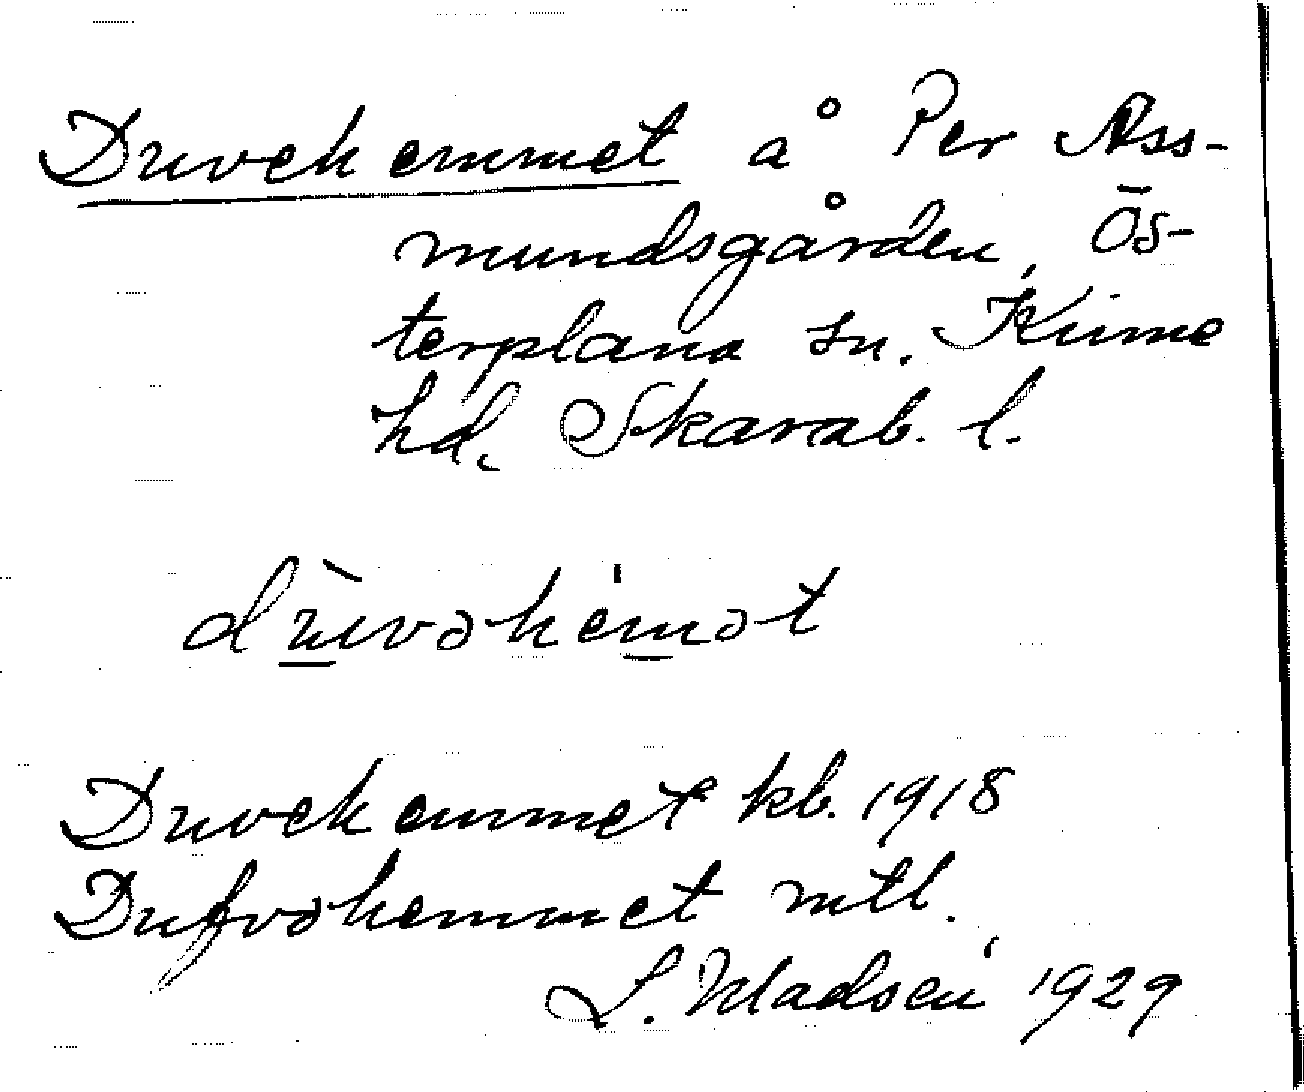 Duvehemmet å Per Ass-
mundsgården, Ös-
terplana sn. Kinne
hd. Skarab. l.
dùvəhémət
Duvehemmet kb. 1918
Dufvohemmet mtl.
L. Madsén 1929